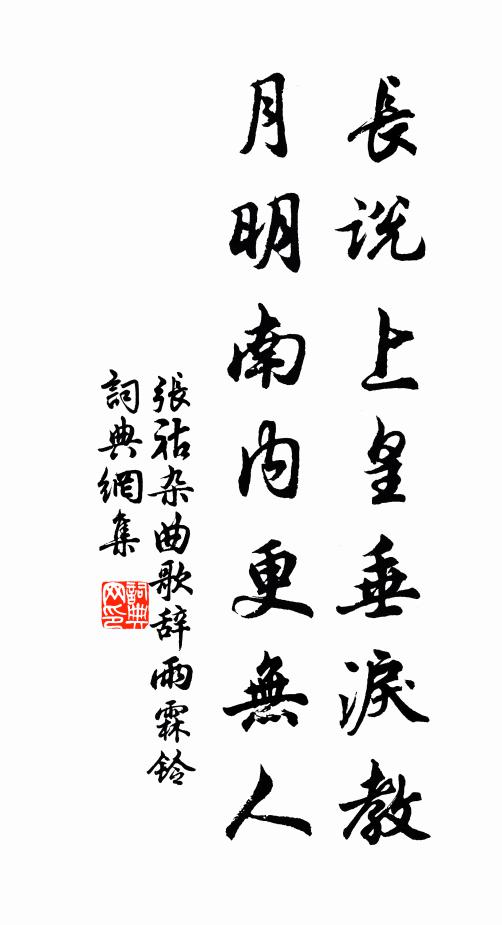 長說上皇垂淚教
月明南内更無人
張祜杂曲歌辞雨霖鈴
詞典網集
詞典网印